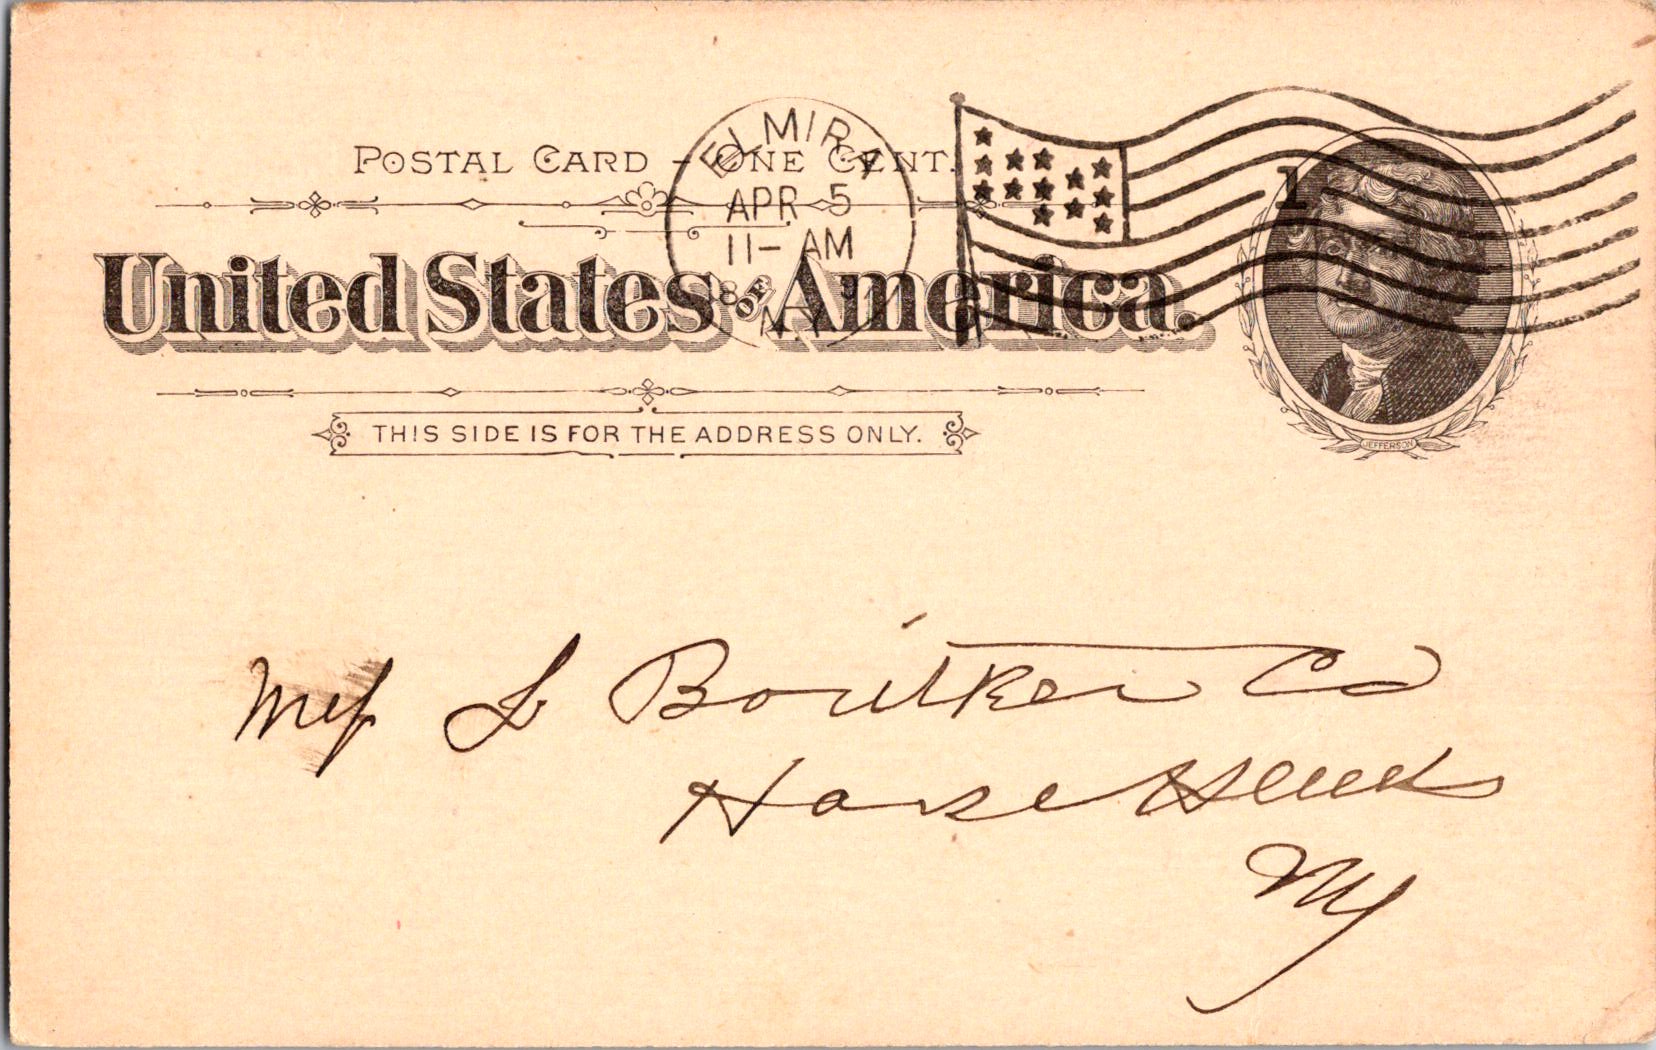 POSTAL CARD - ONE CENT.
ELMIRA
APR 5
11- AM
N.Y.
1
United States of America.
JEFFERSON
THIS SIDE IS FOR THE ADDRESS ONLY.
Co
Horse Heads
NY